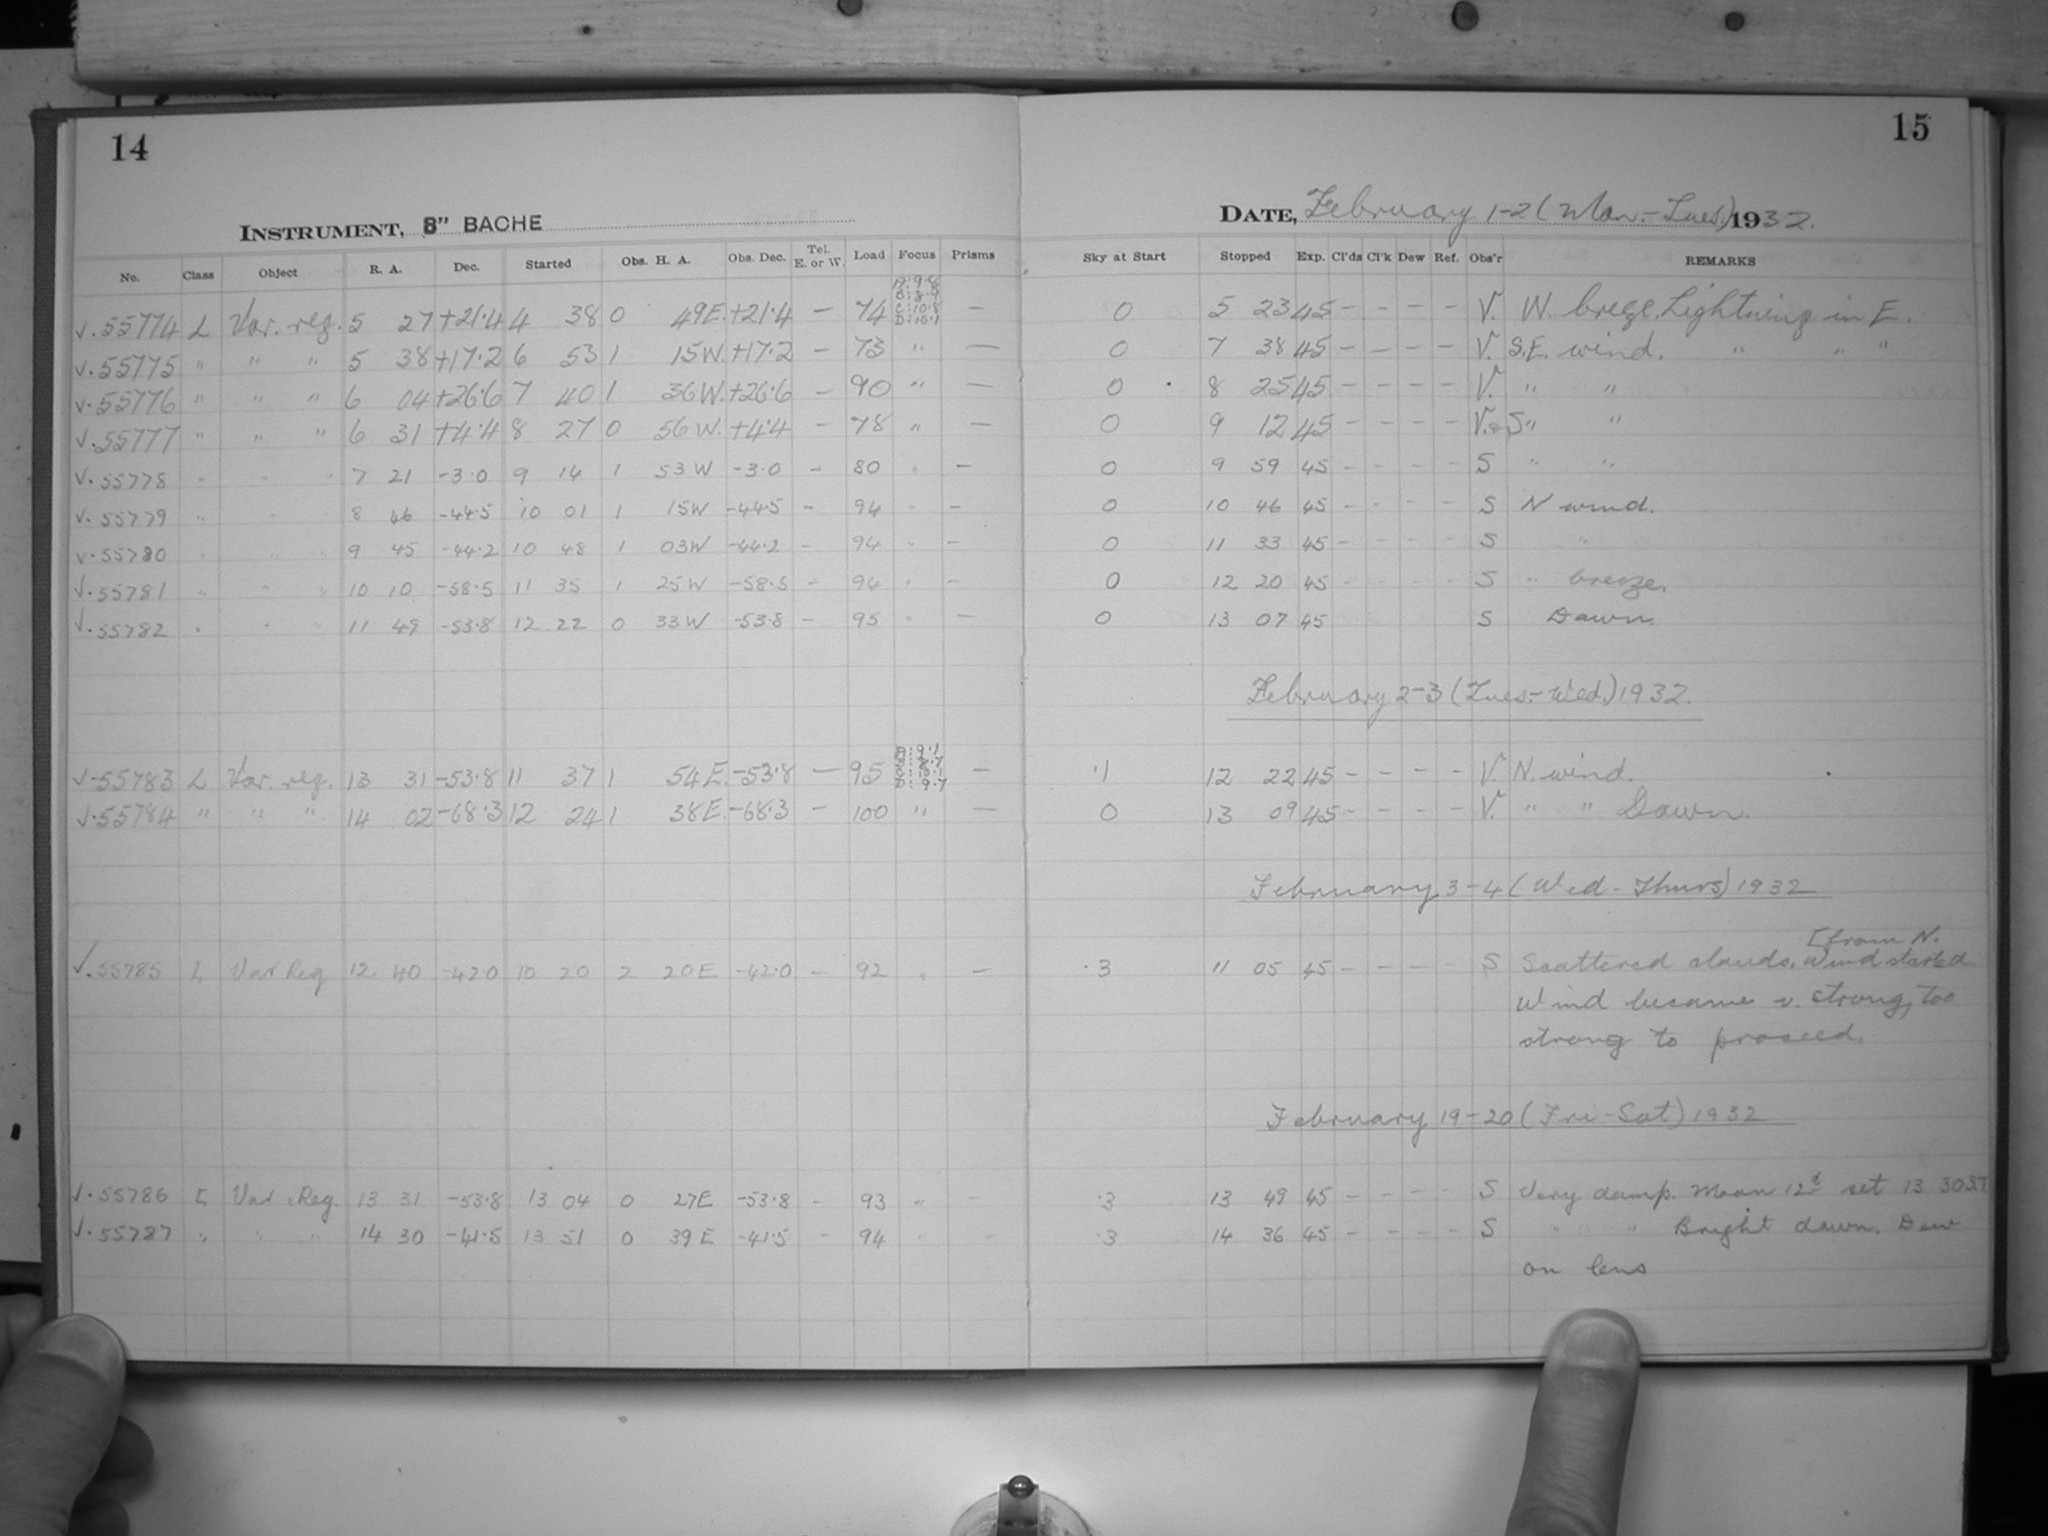 14
15
INSTRUMENT, 8" BACHE
DATE, February 1-2 (Mon.-Tues.) 1932.
No. Class Object R. A. Dec. Started Obs. H. A. Obs. Dec. Tel. E. or W. Load Focus Prisms Sky at Start Stopped Exp. Cl'ds Cl'k Dew Ref. Obs'r REMARKS
√.55774 L Var. reg. 5 27 +21.4 4 38 0 49E. +21.4 — 74 — 0 5 23 45 - - - - V. W. breze. Lightning in E.
√.55775 " " " 5 38 +17.2 6 53 1 15W. +17.2 — 73 " — 0 7 38 45 - - - - V. S.E. wind. " " "
√.55776 " " " 6 04 +26.6 7 40 1 36W. +26.6 — 90 " — 0 8 25 45 - - - - V. " "
√.55777 " " " 6 31 +4.4 8 27 0 56W. +4.4 - 78 " — 0 9 12 45 - - - - V.&S " "
√.55778 " " " 7 21 -3.0 9 14 1 53W -3.0 - 80 " — 0 9 59 45 - - - - S " "
√.55779 " " " 8 46 -44.5 10 01 1 15W -44.5 - 94 " - 0 10 46 45 - - - - S N wind.
√.55780 " " " 9 45 -44.2 10 48 1 03W -44.2 - 94 " - 0 11 33 45 - - - - S "
√.55781 " " " 10 10 -58.5 11 35 1 25W -58.5 - 94 " - 0 12 20 45 - - - - S " breeze.
√.55782 " " " 11 49 -53.8 12 22 0 33W -53.8 - 95 " — 0 13 07 45 S Dawn.
February 2-3 (Tues.-Wed.) 1932.
√.55783 L Var. reg. 13 31 -53.8 11 37 1 54E. -53.8 — 95 — .1 12 22 45 - - - - V. N. wind.
√.55784 " " " 14 02 -68.3 12 24 1 38E. -68.3 - 100 " — 0 13 09 45 - - - - V. " " Dawn.
February 3-4 (Wed-Thurs) 1932
[from N.
√.55785 L Var Reg 12 40 -42.0 10 20 2 20E -42.0 - 92 " - .3 11 05 45 - - - - S Scattered clouds. Wind started
Wind became v. strong, too
strong to proceed.
February 19-20 (Fri-Sat) 1932
√.55786 L Var. Reg 13 31 -53.8 13 04 0 27E -53.8 - 93 " - .3 13 49 45 - - - - S Very damp. Moon 12d set 13 30 ST
√.55787 " " " 14 30 -41.5 13 51 0 39E -41.5 - 94 " - .3 14 36 45 - - - - S " " Bright dawn. Dew
on lens